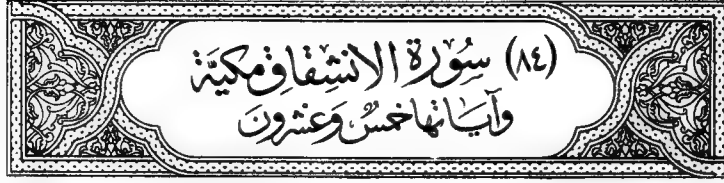 (٨٤) سُورَةُ الانشِقَاقِ مَكيَّة
وَآيَاتهَا خَمسٌ وَعشرُونَ